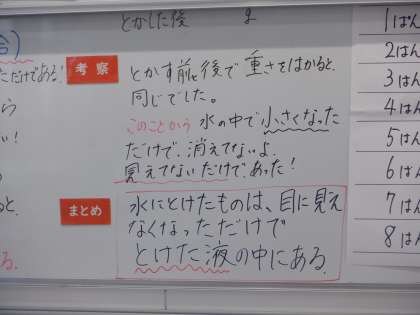 とかした後 g
合)
ただけである!
考察
とかす前と後で重さをはかると、
同じでした。
このことから 水の中で小さくなった
だけで、消えてないよ。
見えてないだけであった!
まとめ
水にとけたものは、目に見え
なくなっただけで
とけた液の中にある。
1ぱん
2はん
3ぱん
4はん
5はん
6ぱん
7はん
8はん